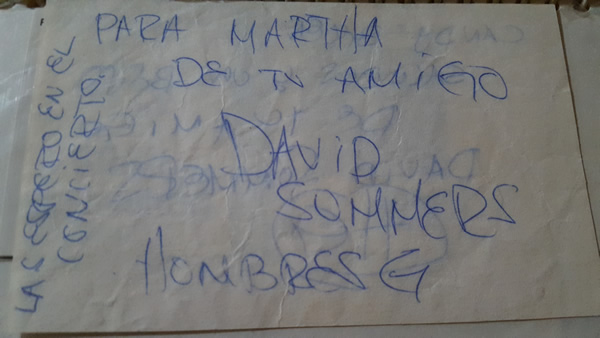 PARA MARTHA
DE TU AMIGO
DAVID
SOMMERS
HOMBRES G
LAS ESPERO EN EL
CONCIERTO